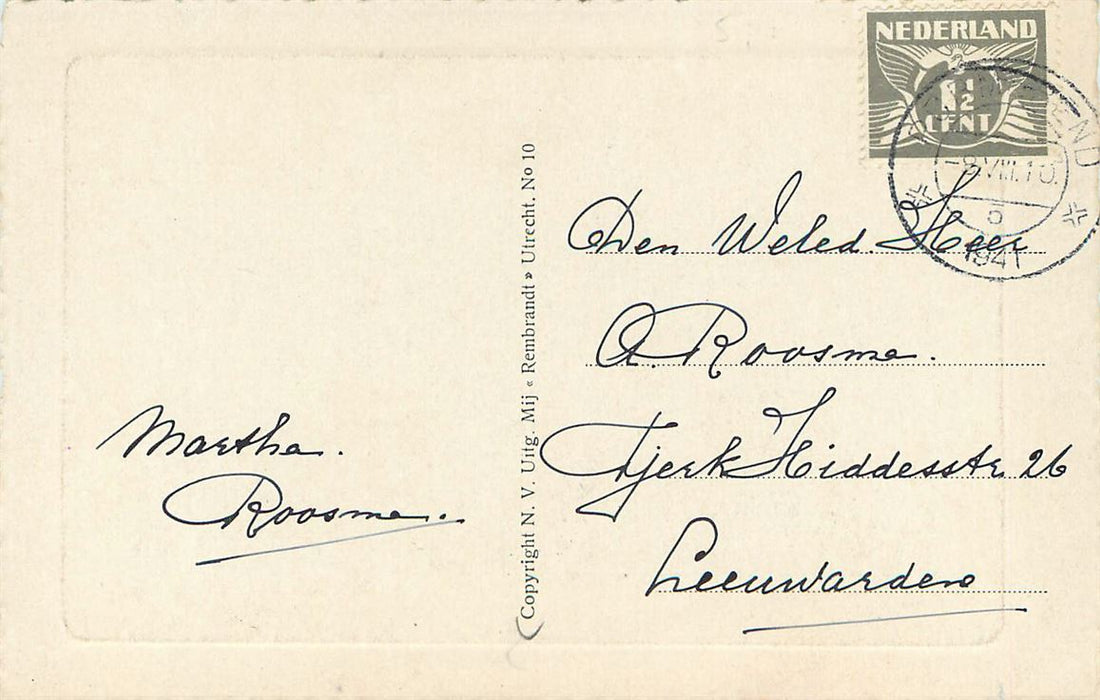 NEDERLAND
1½
CENT
-8.VIII.10.
1941
Martha.
Roosma.
Copyright N. V. Uitg. Mij « Rembrandt » Utrecht. No 10
Den Weled. Heer
A. Roosma.
Tjerk Hiddesstr. 26
Leeuwarden